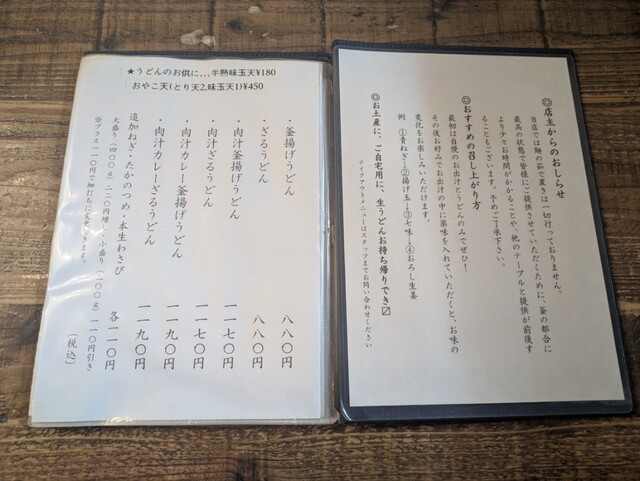 ★うどんのお供に、、、半熟味玉天¥180
おやこ天(とり天2,味玉天1)¥450
・釜揚げうどん 八八〇円
・ざるうどん 八八〇円
・肉汁釜揚げうどん 一一七〇円
・肉汁ざるうどん 一一七〇円
・肉汁カレー釜揚げうどん 一一九〇円
・肉汁カレーざるうどん 一一九〇円
追加ねぎ・たかのつめ・本生わさび 各一一〇円
大盛り(四〇〇g)二二〇円増し・小盛り(二〇〇g)一一〇円引き
※プラス一一〇円で細打ちに変更できます。
[税込]
◎店主からのおしらせ
当店では麺の茹で置きは一切行っておりません。
最高の状態で皆様にご提供させていただくために、釜の都合に
より少々お時間がかかることや、他のテーブルと提供が前後す
ることもございます。予めご了承下さい。
◎おすすめの召し上がり方
最初は自慢のお出汁とうどんのみでぜひ!
その後お好みでお出汁の中に薬味を入れていただくと、お味の
変化をお楽しみいただけます。
例 ①青ねぎ→②揚げ玉→③七味→④おろし生姜
◎お土産に、ご自宅用に、生うどんお持ち帰りでき〼
テイクアウトメニューはスタッフまでお問い合わせください